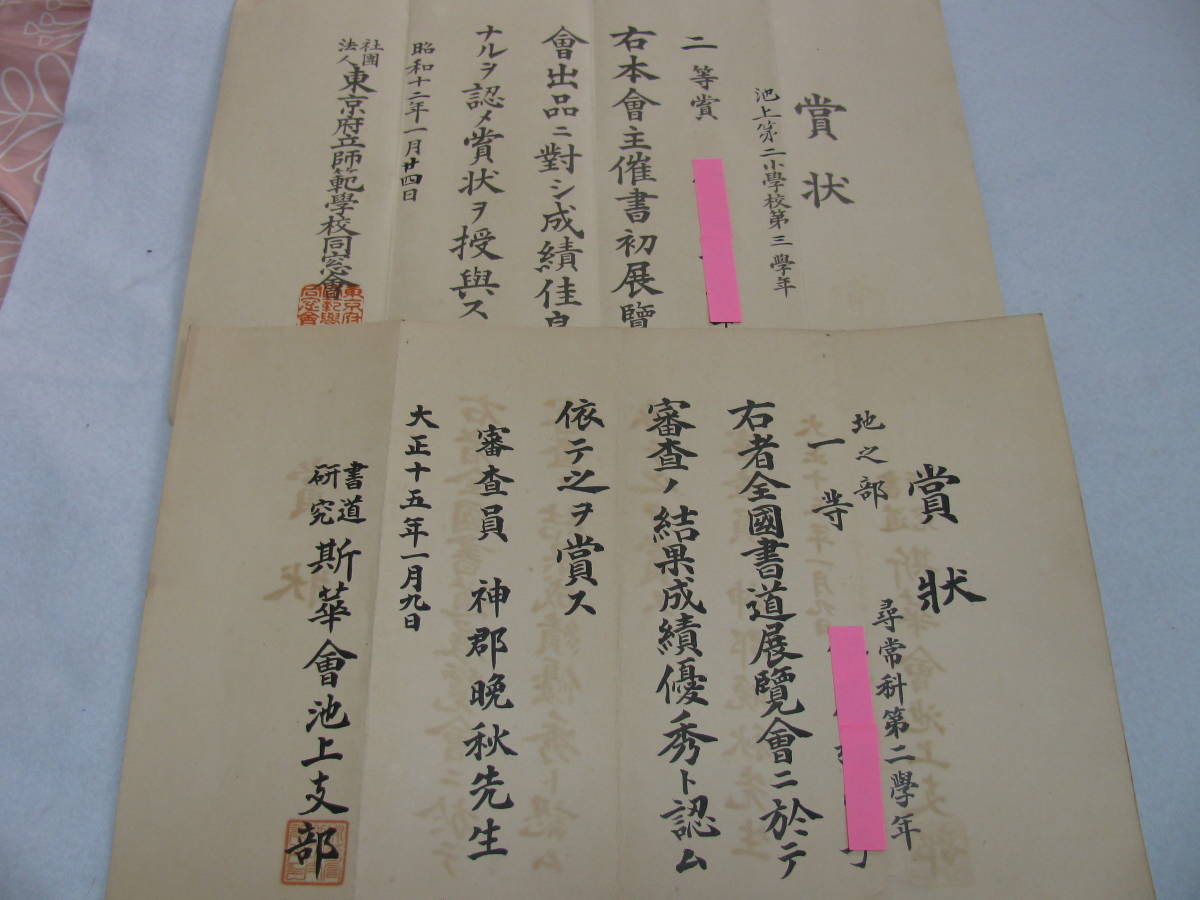 賞状
池上第二小學校第三學年
二等賞
右本會主催書初展覽
會出品ニ對シ成績佳良
ナルヲ認メ賞状ヲ授與ス
昭和十二年一月廿四日
社團法人東京府立師範學校同窓會
賞狀
尋常科第二學年
地之部
一等
右者全國書道展覽會ニ於テ
審査ノ結果成績優秀ト認ム
依テ之ヲ賞ス
審査員 神郡晩秋先生
大正十五年一月九日
書道研究斯華會池上支部